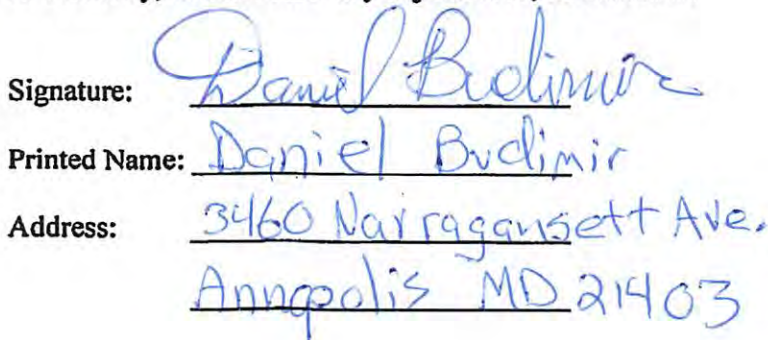 Signature: Daniel Budimir
Printed Name: Daniel Budimir
Address: 3460 Narragansett Ave.
Annapolis MD 21403